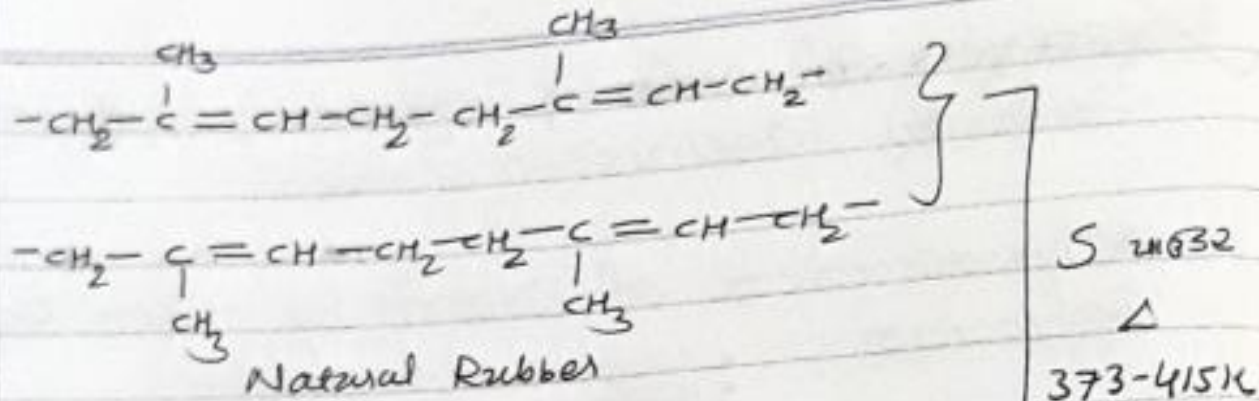 CH3 CH3
-CH2-C=CH-CH2-CH2-C=CH-CH2-
-CH2-C=CH-CH2-CH2-C=CH-CH2-
CH3 CH3
Natural Rubber
S
Δ
373-415K